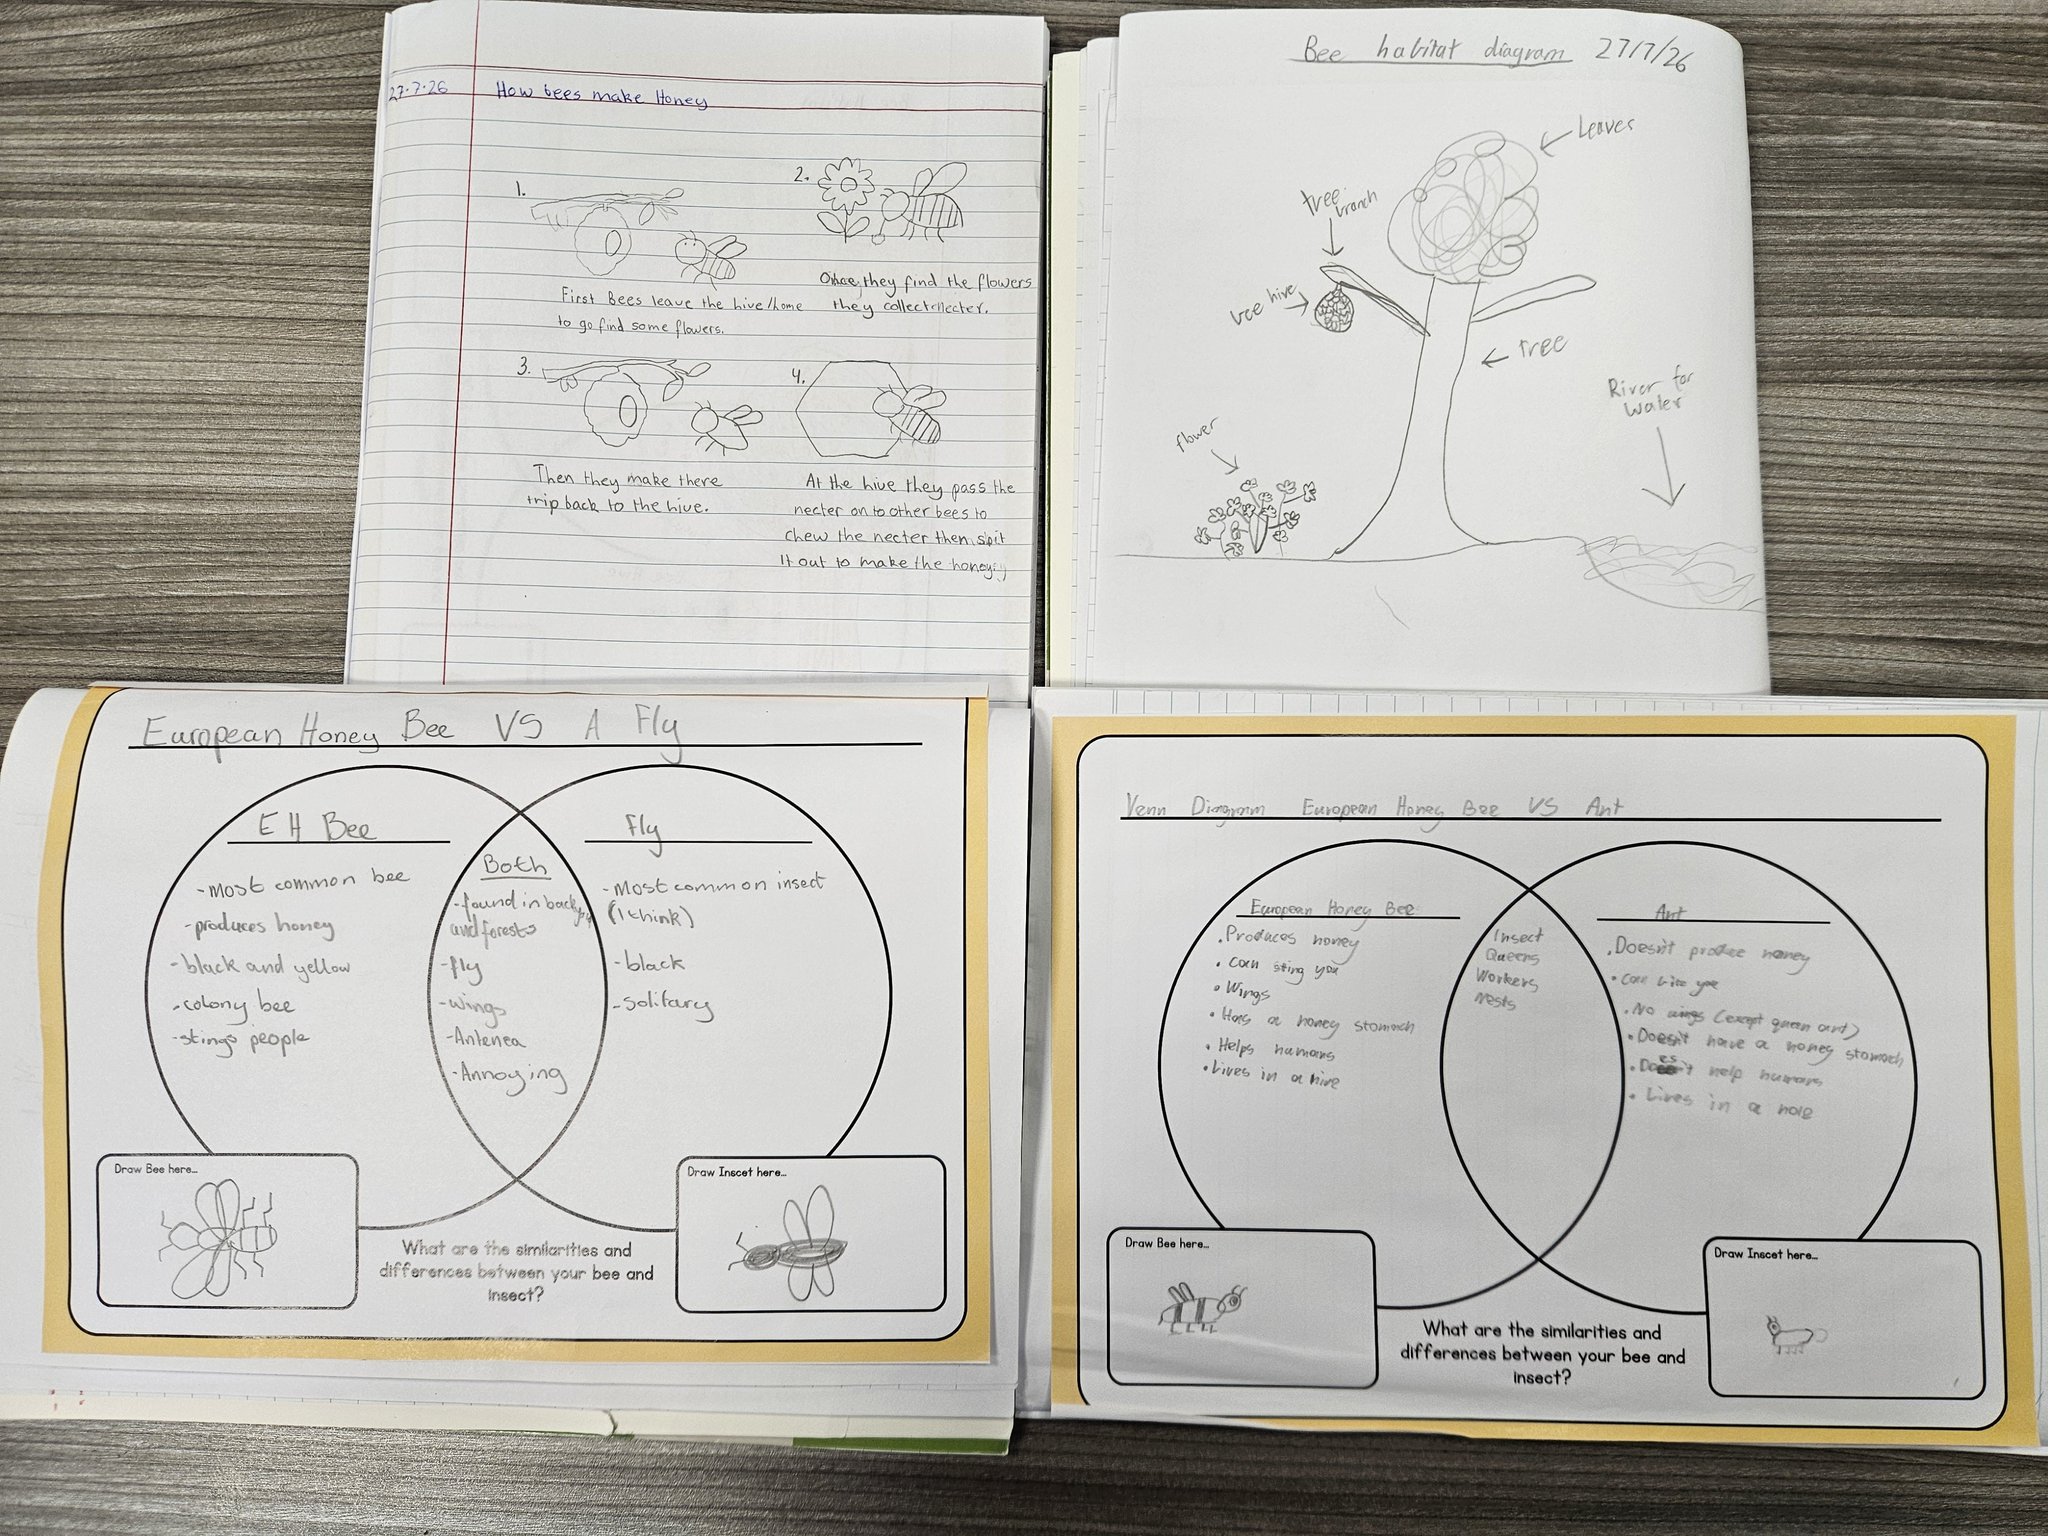 27.7.26 How bees make Honey
1.
First Bees leave the hive/home
to go find some flowers.
2.
Once, they find the flowers
they collect necter.
3.
Then they make there
trip back to the hive.
4.
At the hive they pass the
necter on to other bees to
chew the necter then spit
it out to make the honey.
Bee habitat diagram 27/7/26
Leaves
tree
branch
bee hive
tree
River for
water
flower
European Honey Bee VS A Fly
E H Bee
-most common bee
-produces honey
-black and yellow
-colony bee
-stings people
Both
-found in
and forests
-fly
-wings
-Antenea
-Annoying
Fly
-most common insect
(I think)
-black
-solitary
Draw Bee here...
Draw Inscet here...
What are the similarities and
differences between your bee and
insect?
Venn Diagram European Honey Bee VS Ant
European Honey Bee
• Produces honey
• can sting you
• Wings
• Has a honey stomach
• Helps humans
• Lives in a hive
Insect
Queens
Workers
Nests
Ant
• Doesn't produce honey
• can bite you
• No wings (except queen ant)
• Doesn't have a honey stomach
• help humans
• Lives in a hole
Draw Bee here...
Draw Inscet here...
What are the similarities and
differences between your bee and
insect?